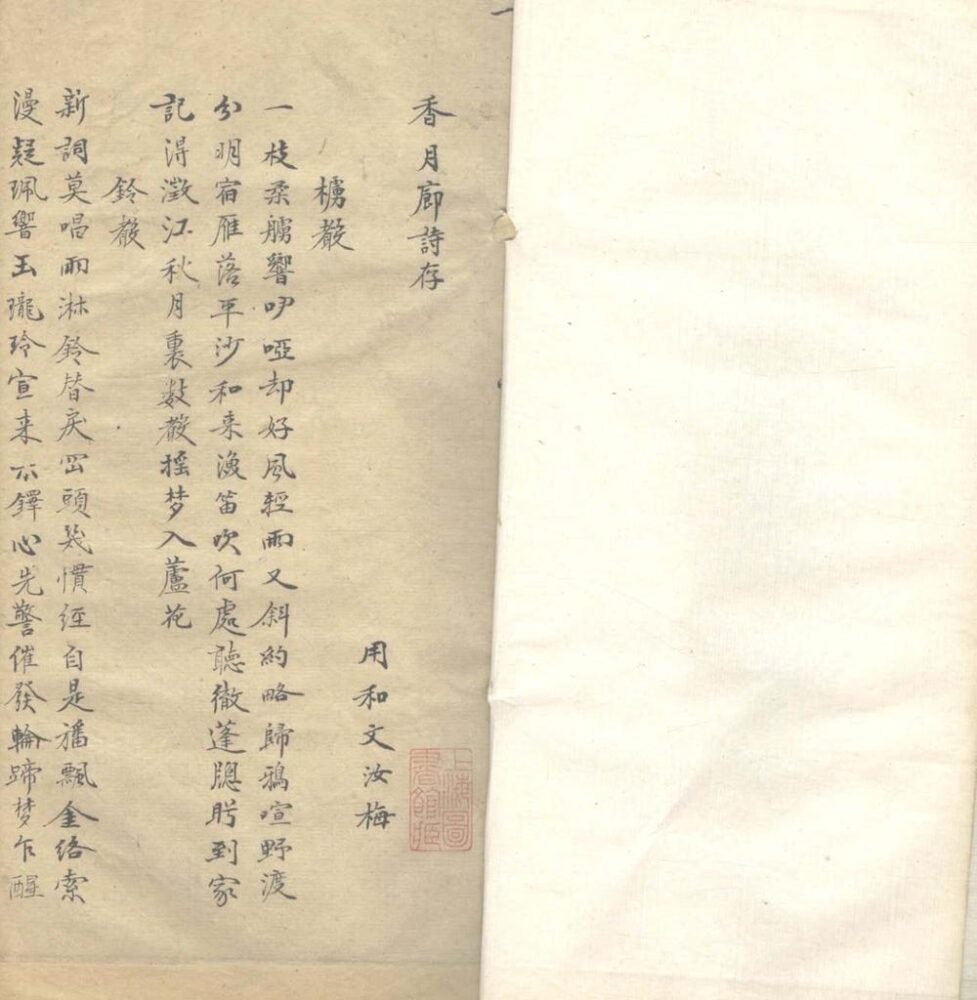 香月廊詩存
用和文汝梅
上海圖書館藏
樐聲
一枝柔艣響咿啞却好風輕雨又斜約略歸鴉喧野渡
分明宿雁落平沙和来漁笛吹何處聽徹蓬牕盻到家
記得澂江秋月裏數聲摇梦入蘆花
鈴聲
新詞莫唱雨淋鈴替戾岡頭幾慣經自是旛飄金络索
漫疑珮響玉瓏玲宣来木鐸心先警催發輪蹄梦乍醒